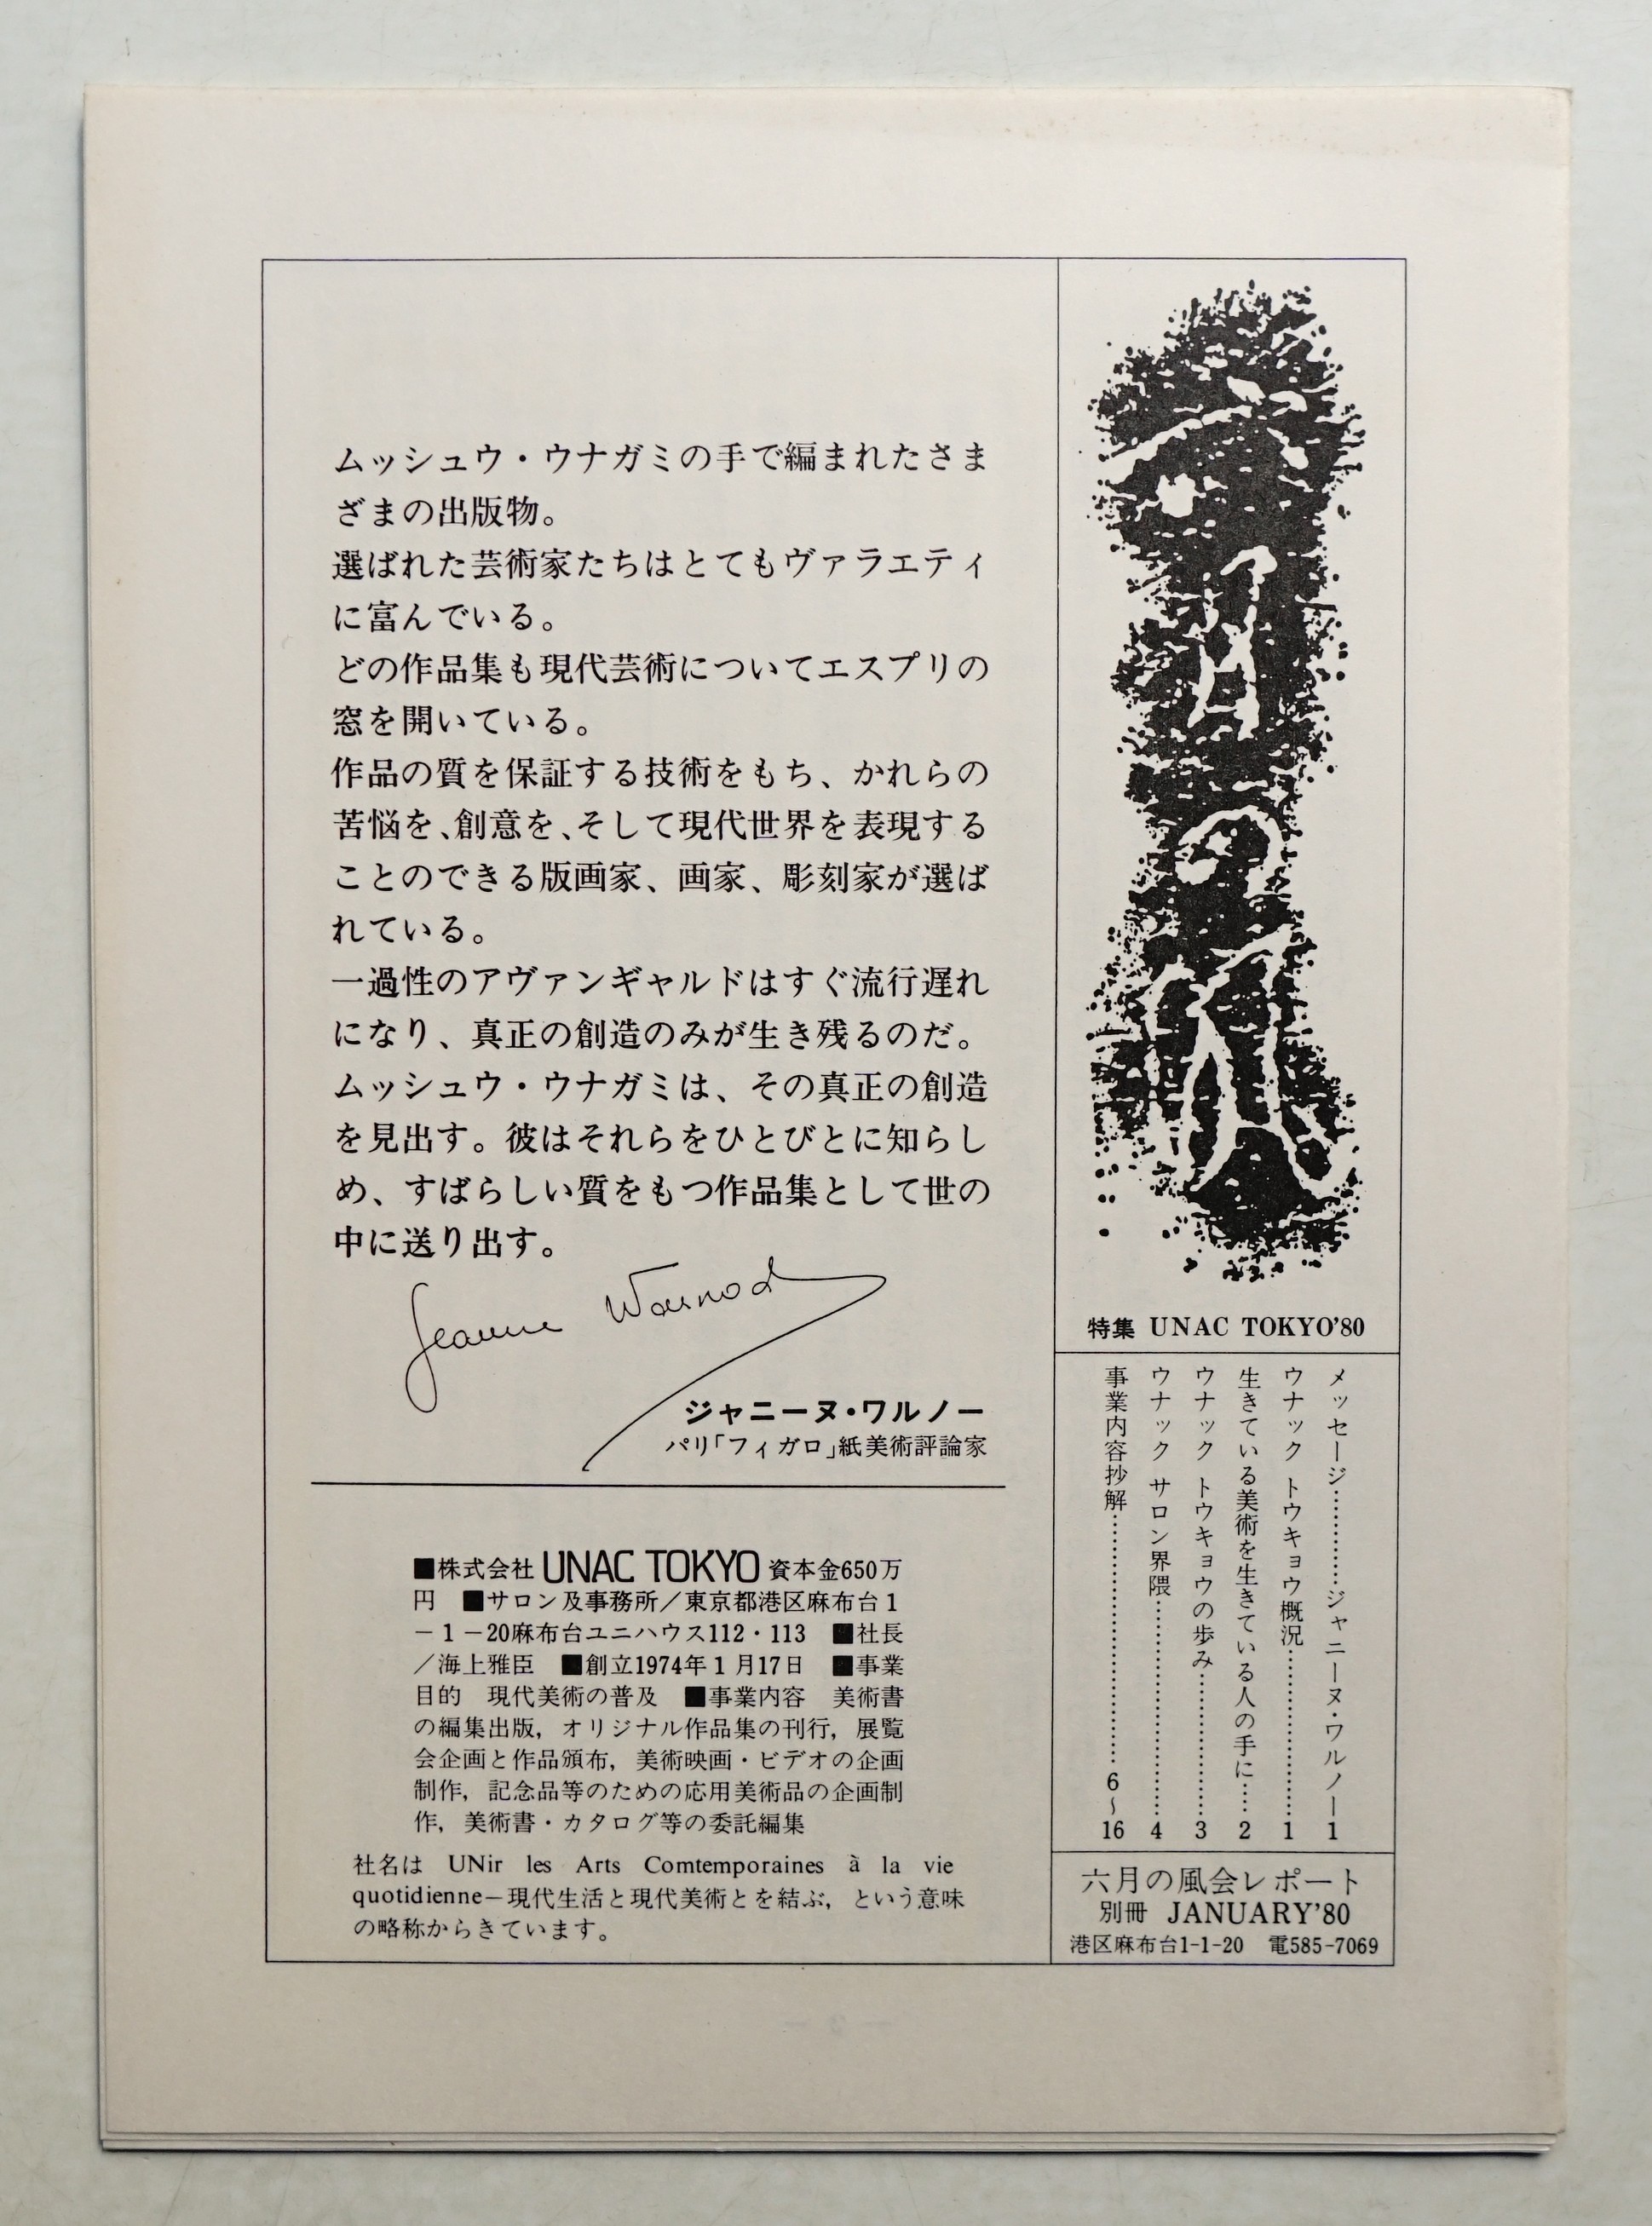 ムッシュウ・ウナガミの手で編まれたさま
ざまの出版物。
選ばれた芸術家たちはとてもヴァラエティ
に富んでいる。
どの作品集も現代芸術についてエスプリの
窓を開いている。
作品の質を保証する技術をもち、かれらの
苦悩を、創意を、そして現代世界を表現する
ことのできる版画家、画家、彫刻家が選ば
れている。
一過性のアヴァンギャルドはすぐ流行遅れ
になり、真正の創造のみが生き残るのだ。
ムッシュウ・ウナガミは、その真正の創造
を見出す。彼はそれらをひとびとに知らし
め、すばらしい質をもつ作品集として世の
中に送り出す。
Jeanine Warnod
ジャニーヌ・ワルノー
パリ「フィガロ」紙美術評論家
■株式会社 UNAC TOKYO 資本金650万
円 ■サロン及事務所／東京都港区麻布台1
－1－20麻布台ユニハウス112・113 ■社長
／海上雅臣 ■創立1974年1月17日 ■事業
目的 現代美術の普及 ■事業内容 美術書
の編集出版，オリジナル作品集の刊行，展覧
会企画と作品頒布，美術映画・ビデオの企画
制作，記念品等のための応用美術品の企画制
作，美術書・カタログ等の委託編集
社名は UNir les Arts Comtemporaines à la vie
quotidienne－現代生活と現代美術とを結ぶ，という意味
の略称からきています。
特集 UNAC TOKYO'80
メッセージ…………ジャニーヌ・ワルノー 1
ウナック トウキョウ概況………………… 1
生きている美術を生きている人の手に…… 2
ウナック トウキョウの歩み……………… 3
ウナック サロン界隈……………………… 4
事業内容抄解……………………………… 6～16
六月の風会レポート
別冊 JANUARY'80
港区麻布台1-1-20 電585-7069